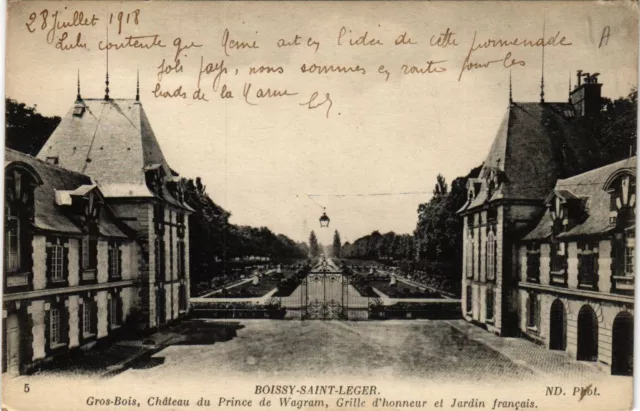 28 Juillet 1918
contente que Rémi ait eu l'idée de cette promenade
Joli pays, nous sommes en route pour les
bords de la Marne
A
5
BOISSY-SAINT-LEGER.
ND Phot.
Gros-Bois, Château du Prince de Wagram, Grille d'honneur et Jardin français.